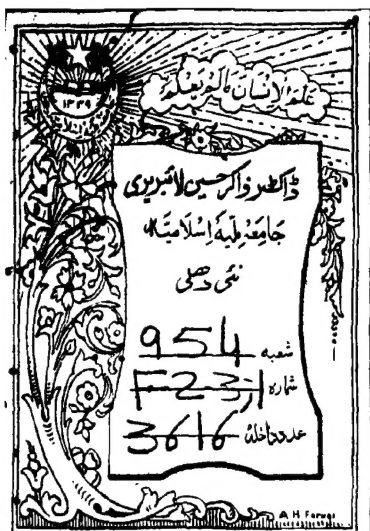 علم الانسان مالم يعلم
۱۳۳۹
ڈاکٹر ذاکر حسین لائبریری
جامعہ ملیہ اسلامیہ
نئی دھلی
شعبہ 954
شمارہ F23;1
عدد داخلہ 3616
A H Faruqi